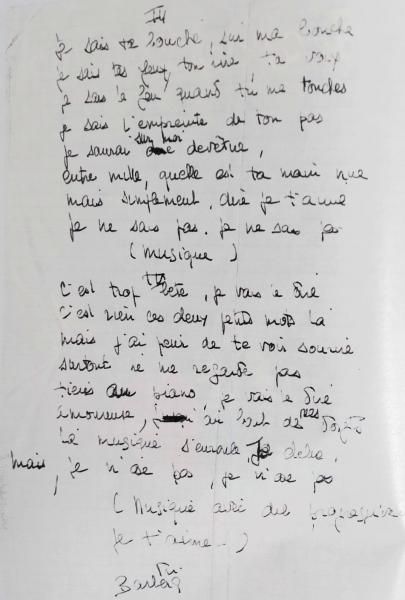 III
je sais ta bouche, sur ma bouche
je sais tes yeux, ton rire ta voix
je sais le feu quand tu me touches
je sais l'empreinte de ton pas
je saurai sur moi dévêtue,
entre mille, quelle est ta main nue
mais simplement, dire je t'aime
je ne sais pas. je ne sais pas
(musique)
c'est trop bête, je vais le dire
c'est rien ces deux petits mots là
mais j'ai peur de te voir sourire
surtout ne me regarde pas
tiens au piano, je vais le dire
amoureuse, du bout de mes doigts
la musique
mais, je n'ose pas, je n'ose pas
(Musique avec des
je t'aime)
Barbara